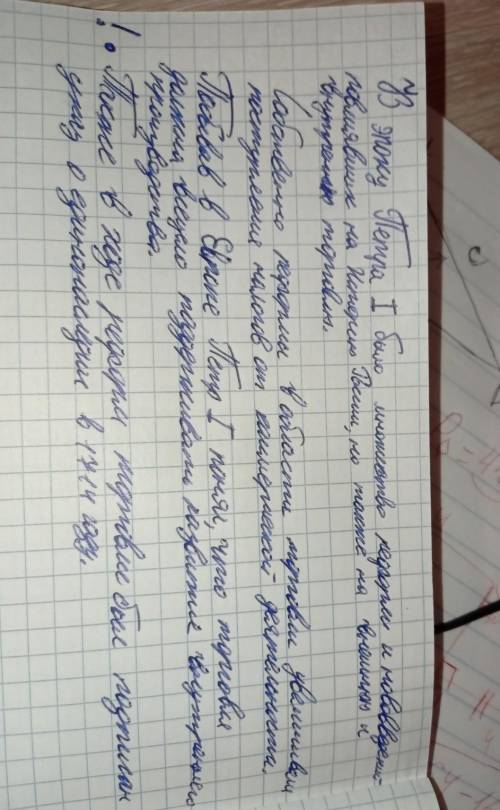 В эпоху Петра I было множество реформ и нововведений
повлиявших на историю России, но также на внешнюю и
внутреннюю торговлю.
Собственно реформы в области торговли увеличивали
поступления налогов от коммерческой деятельности.
Побывав в Европе Петр I понял, что торговля
должна всецело поддерживать развитие внутреннего
производства.
! Также в ходе реформ торговле был подписан
указ о единонаследие в 1714 году.